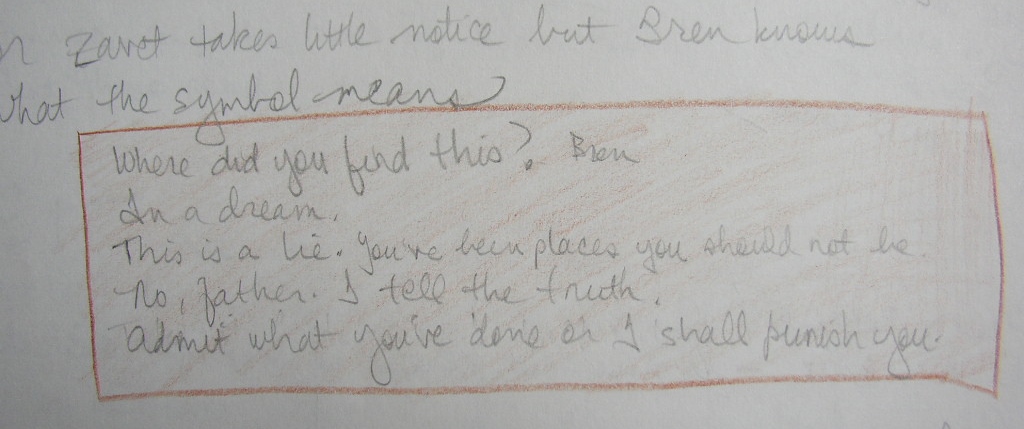 Zavet takes little notice but Bren knows
what the symbol means
Where did you find this? Bren
In a dream.
This is a lie. You've been places you should not be.
No, father. I tell the truth.
Admit what you've done or I shall punish you.